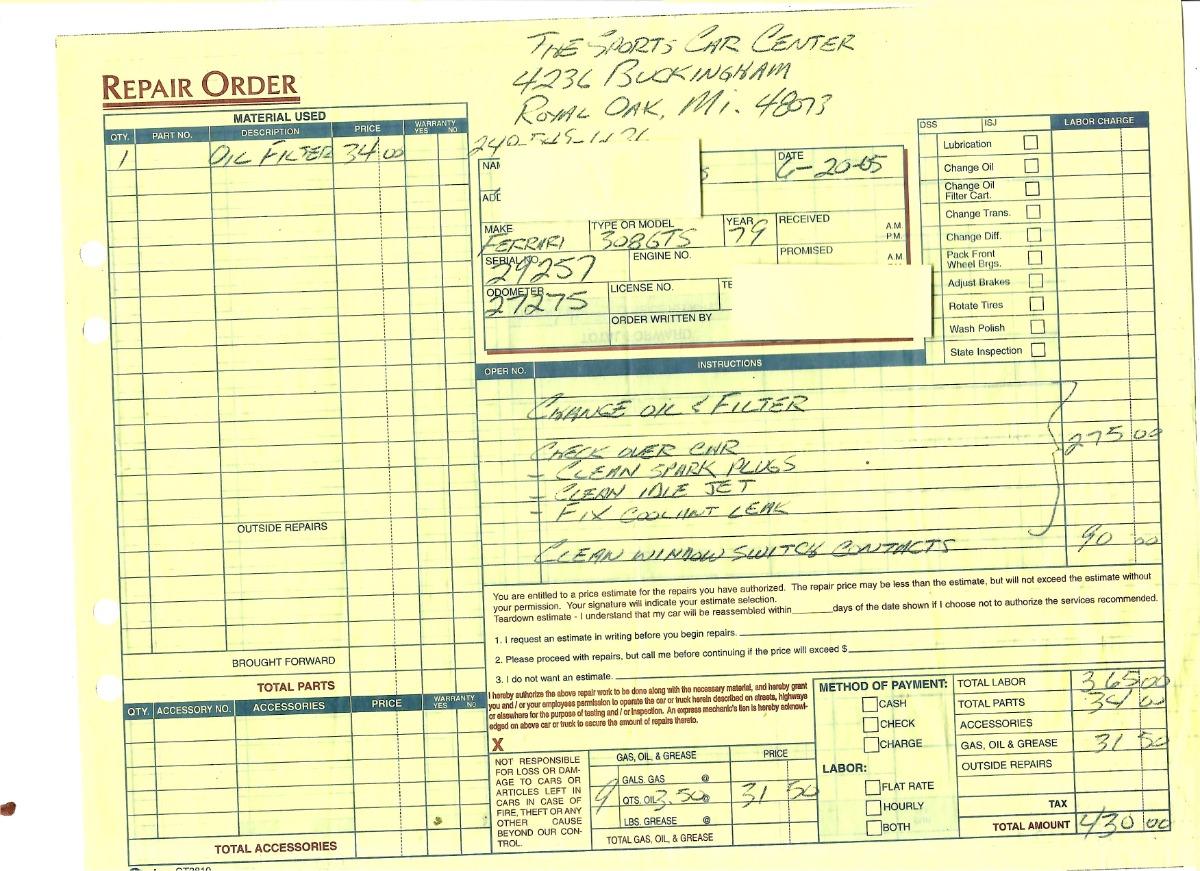 THE SPORTS CAR CENTER
4236 BUCKINGHAM
ROYAL OAK, MI. 48073
REPAIR ORDER
MATERIAL USED
QTY. PART NO. DESCRIPTION PRICE WARRANTY YES NO
1 OIL FILTER 34 00
OUTSIDE REPAIRS
BROUGHT FORWARD
TOTAL PARTS
QTY. ACCESSORY NO. ACCESSORIES PRICE WARRANTY YES NO
TOTAL ACCESSORIES
DATE
6-20-05
MAKE TYPE OR MODEL YEAR RECEIVED A.M. P.M.
FERRARI 308GTS 79
SERIAL NO. ENGINE NO. PROMISED A.M.
29257
ODOMETER LICENSE NO.
27275
ORDER WRITTEN BY
DSS ISJ LABOR CHARGE
Lubrication
Change Oil
Change Oil Filter Cart.
Change Trans.
Change Diff.
Pack Front Wheel Brgs.
Adjust Brakes
Rotate Tires
Wash Polish
State Inspection
OPER NO. INSTRUCTIONS
CHANGE OIL & FILTER
CHECK OVER CAR 275 00
- CLEAN SPARK PLUGS
- CLEAN IDLE JET
- FIX COOLANT LEAK
CLEAN WINDOW SWITCH CONTACTS 90 00
You are entitled to a price estimate for the repairs you have authorized. The repair price may be less than the estimate, but will not exceed the estimate without
your permission. Your signature will indicate your estimate selection.
Teardown estimate - I understand that my car will be reassembled within ______ days of the date shown if I choose not to authorize the services recommended.
1. I request an estimate in writing before you begin repairs.
2. Please proceed with repairs, but call me before continuing if the price will exceed $
3. I do not want an estimate.
I hereby authorize the above repair work to be done along with the necessary material, and hereby grant
you and / or your employees permission to operate the car or truck herein described on streets, highways
or elsewhere for the purpose of testing and / or inspection. An express mechanic's lien is hereby acknowl-
edged on above car or truck to secure the amount of repairs thereto.
X
NOT RESPONSIBLE
FOR LOSS OR DAM-
AGE TO CARS OR
ARTICLES LEFT IN
CARS IN CASE OF
FIRE, THEFT OR ANY
OTHER CAUSE
BEYOND OUR CON-
TROL.
GAS, OIL & GREASE PRICE
GALS. GAS @
9 QTS. OIL 3.50 @ 31 50
LBS. GREASE @
TOTAL GAS, OIL & GREASE
METHOD OF PAYMENT:
CASH
CHECK
CHARGE
LABOR:
FLAT RATE
HOURLY
BOTH
TOTAL LABOR 365 00
TOTAL PARTS 34 00
ACCESSORIES
GAS, OIL & GREASE 31 50
OUTSIDE REPAIRS
TAX
TOTAL AMOUNT 430 00